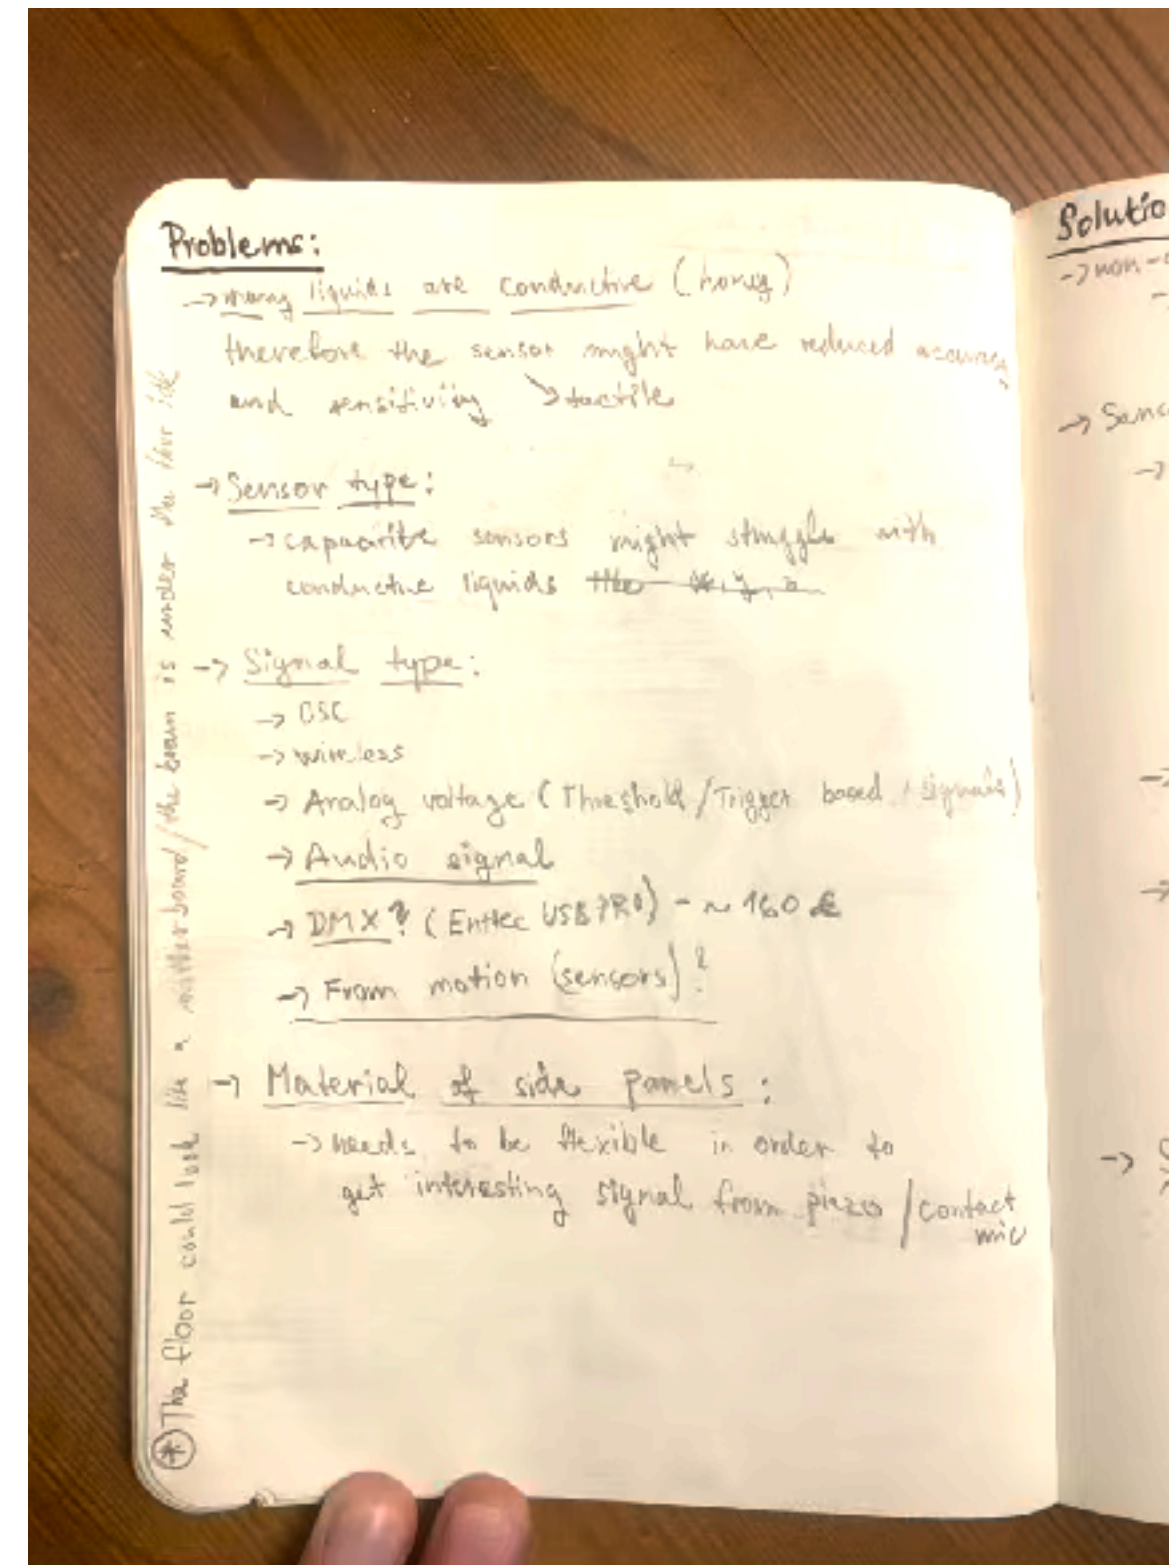 Problems:
→ many liquids are conductive (honey)
therefore the sensor might have reduced accuracy
and sensitivity ↘ tactile
→ Sensor type:
→ capacitive sensors might struggle with
conductive liquids
→ Signal type:
→ OSC
→ wireless
→ Analog voltage (Threshold/Trigger based signals)
→ Audio signal
→ DMX? (Enttec USB PRO) - ~ 160 €
→ From motion (sensors)?
→ Material of side panels:
→ needs to be flexible in order to
get interesting signal from piezo / contact
mic
(*) The floor could look like a motherboard/the brain is under the
Solutio
→ non-
→ Sens